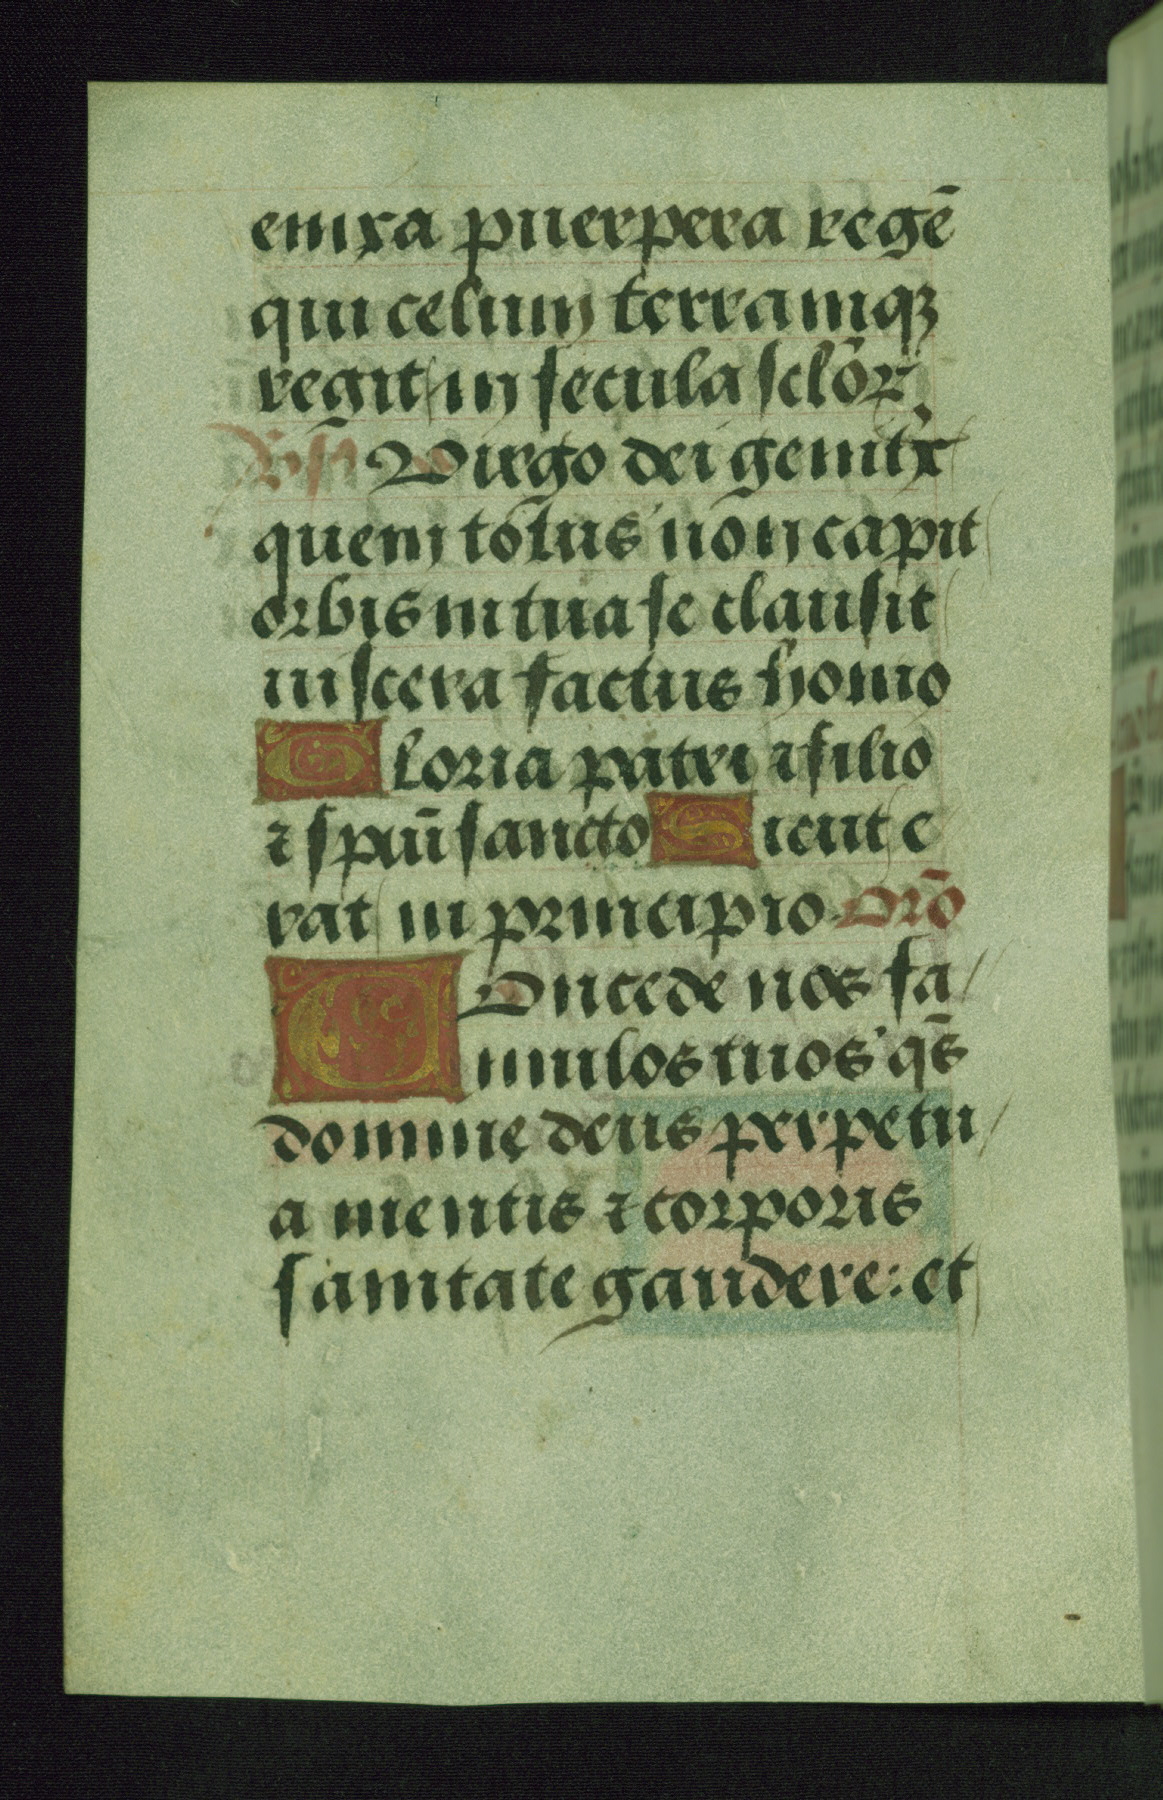 enixa puerpera regē
qui celum terramqꝫ
regit in secula sclōꝝ
Virgo dei genitͥx
quem totus non capit
orbis in tua se clausit
uiscera factus homo
Gloria patri ⁊ filio
⁊ spūi sancto Sicut e
rat in principio Orō
Concede nos fa
mulos tuos q̄s
domine deus perpetu
a mentis ⁊ corporis
sanitate gaudere: et